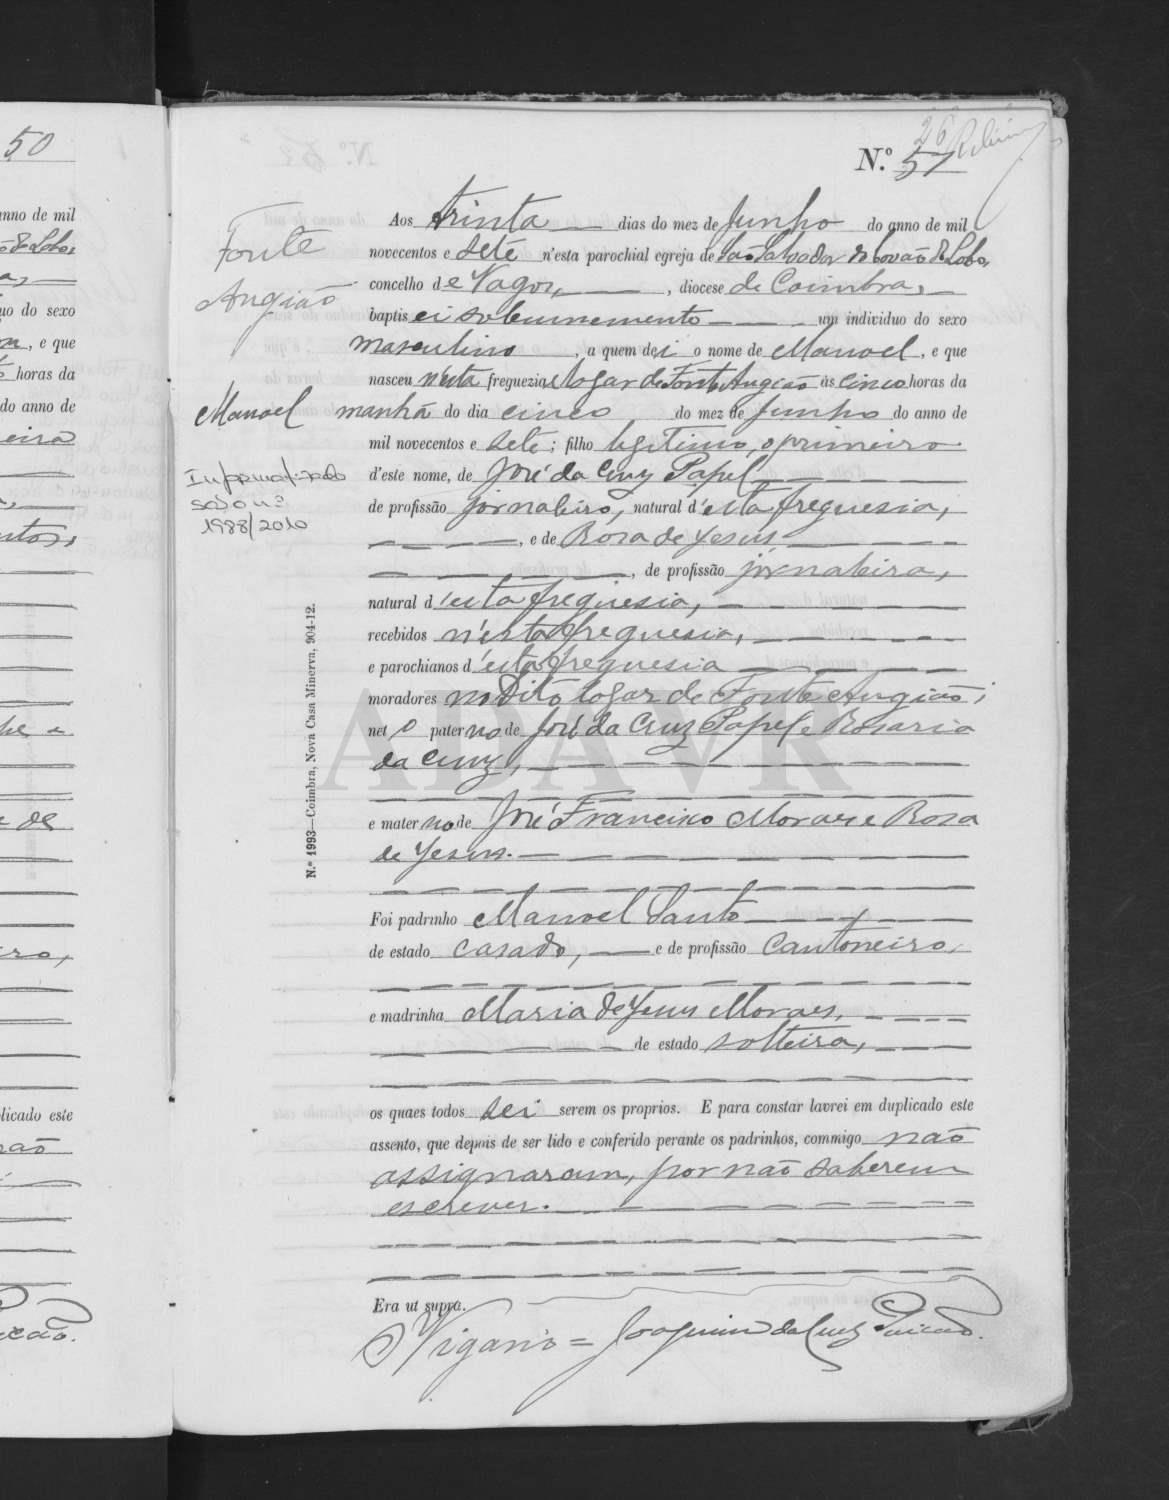 50
anno de mil
uo do sexo
, e que
horas da
do anno de
eira
de
iro,
licado este
26
N.º 51
Fonte
Angião
Manoel
Informatizado
1988/2010
Aos trinta dias do mez de Junho do anno de mil
novecentos e sete n'esta parochial egreja de São Salvador de Covão do Lobo,
concelho de Vagos, , diocese de Coimbra,
baptisei solemnemente um individuo do sexo
masculino , a quem dei o nome de Manoel , e que
nasceu n'esta freguezia, logar de Fonte Angião ás cinco horas da
manhã do dia cinco do mez de Junho do anno de
mil novecentos e sete ; filho legitimo, o primeiro
d'este nome, de José da Cruz Papel
de profissão jornaleiro, natural d'esta freguesia,
, e de Rosa de Jesus
, de profissão jornaleira,
natural d'esta freguesia,
recebidos n'esta freguesia,
e parochianos d'esta freguesia
moradores no dito logar de Fonte Angião;
neto paterno de José da Cruz Papel e Rosaria
da Cruz,
e materno de José Francisco Moraes e Rosa
de Jesus.
Foi padrinho Manoel Santo
de estado casado, e de profissão cantoneiro,
e madrinha Maria de Jesus Moraes,
de estado solteira,
os quaes todos sei serem os proprios. E para constar lavrei em duplicado este
assento, que depois de ser lido e conferido perante os padrinhos, commigo não
assignaram, por não saberem
escrever.
Era ut supra.
O Vigario = Joaquim da Cruz
N.º 1993—Coimbra, Nova Casa Minerva, 904-12.
ADAVR